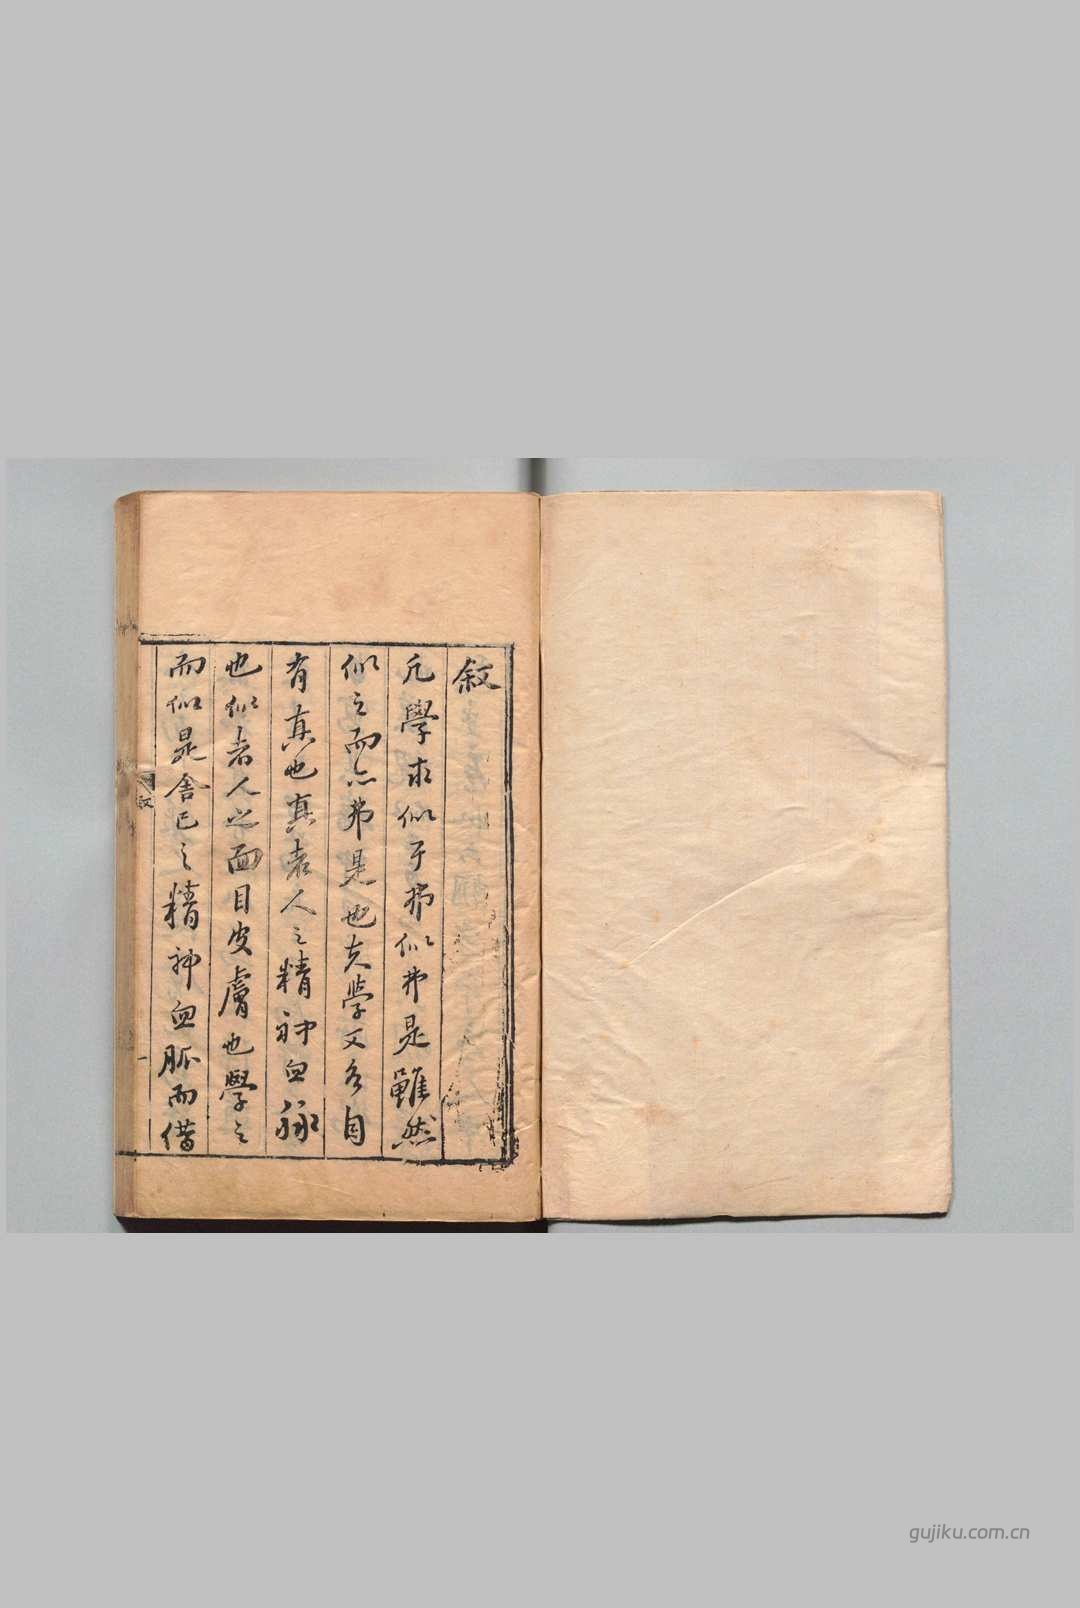 叙
凡學求似于弗似弗是雖然
似之而亦弗是也夫學又各自
有真也真者人之精神血脉
也似者人之面目皮膚也學之
而似是舍已之精神血脈而借
叙
一
gujiku.com.cn